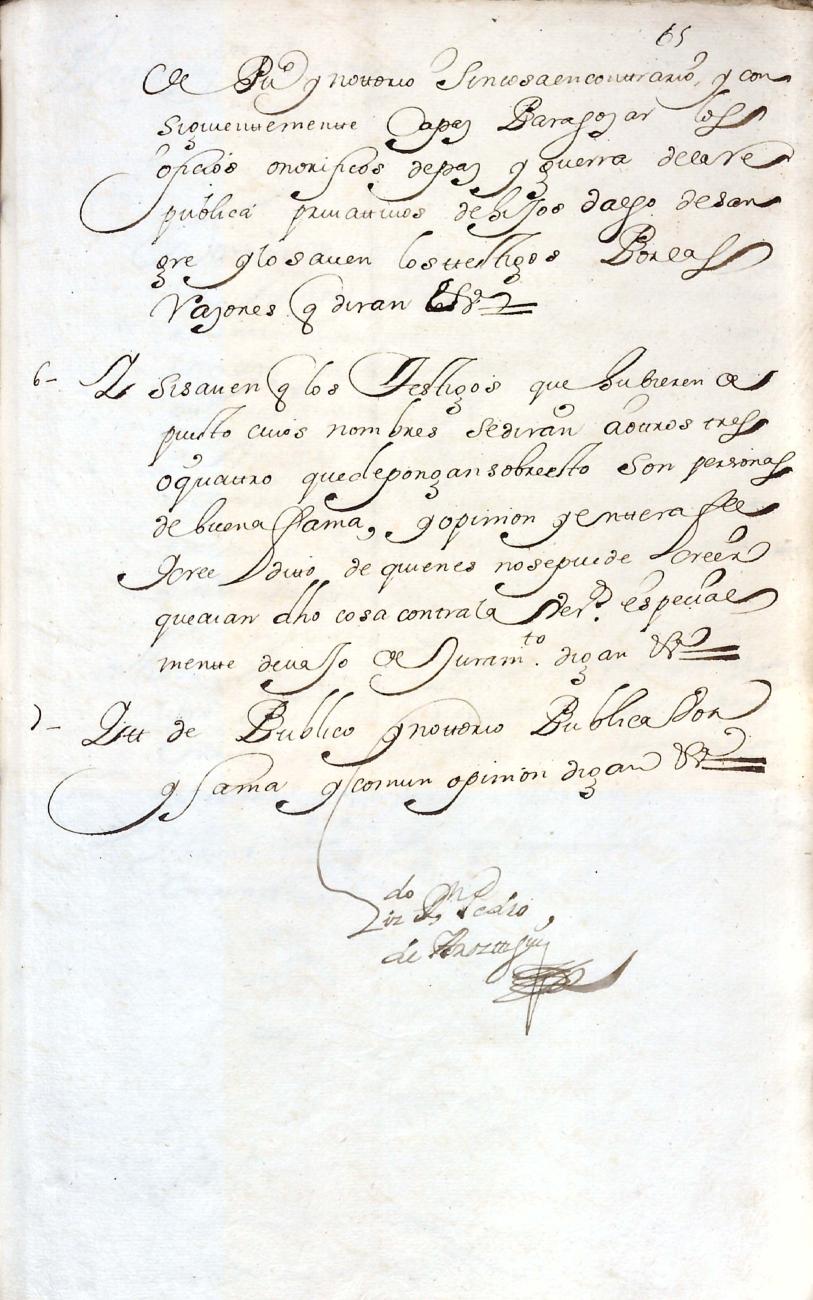 65
de Pu.co y nottorio sin cosa en conttrario, y con
siguienttementte capaz para gozar los
oficios onorificos de paz y guerra de la re
publica priuattiuos de hijos dalgo de san
gre y lo sauen los ttesttigos Por las
Razones q diran &a
6- Y si sauen q los Testigos que hubieren de
puesto cuios nombres se diran a ottros tres
o quattro que depongan sobre esto son personas
de buena fama, y opinion y enttera fee
y credditto de quienes no se puede creer
que aian dho cosa contra la Ver.d especial
mentte devajo de Juram.to digan &a
7- Ytt de Publico y nottorio Publica voz
y fama y comun opinion digan &a
Liz.do Dn Pedro
de